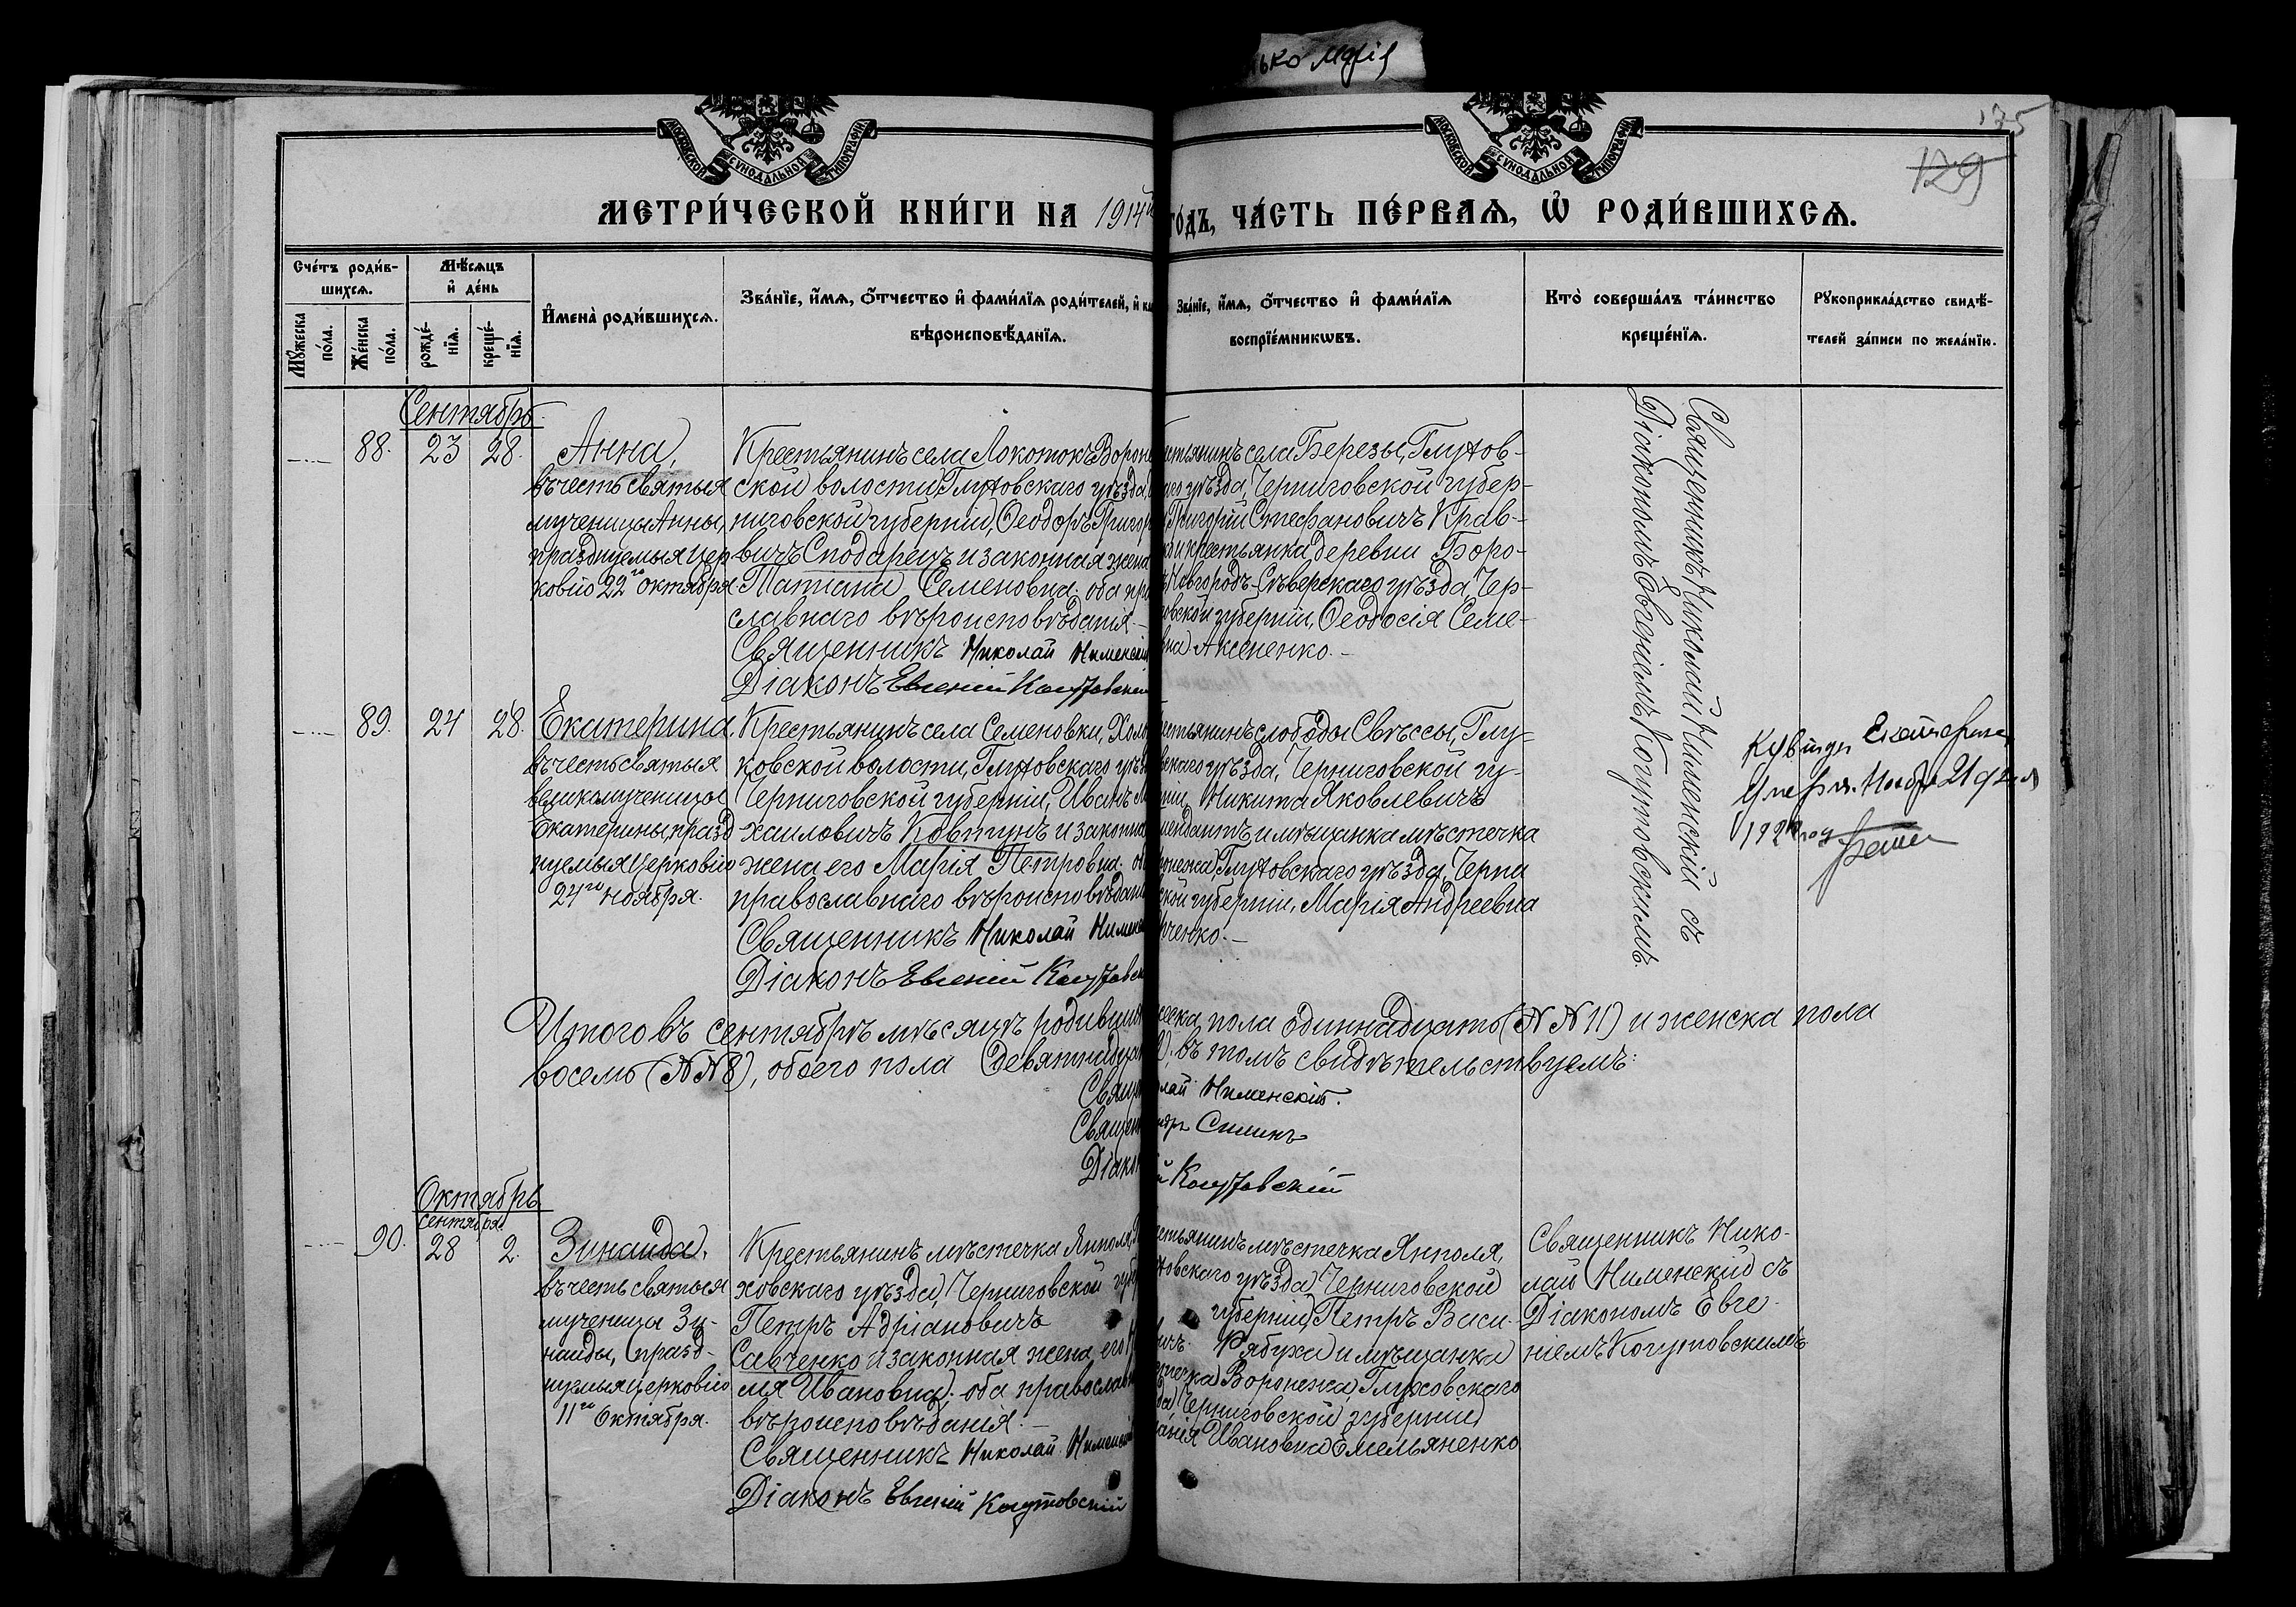 ько марія
175
129
МОСКОВСКОЙ СѴНОДАЛЬНОЙ ТИПОГРАФІИ
МОСКОВСКОЙ СѴНОДАЛЬНОЙ ТИПОГРАФІИ
МЕТРИ́ЧЕСКОЙ КНИ́ГИ НА 1914й
ГО́ДЪ, ЧА́СТЬ ПЕ́РВАѦ, Ѡ҆ РОДИ́ВШИХСѦ.
Сче́тъ роди́в-
шихсѧ.
Мꙋ́жеска
по́ла.
Же́нска
по́ла.
Мѣ́сѧцъ
и҆ де́нь
рожде́-
нїѧ.
креще́-
нїѧ.
И҆мена̀ роди́вшихсѧ.
Зва́нїе, и҆́мѧ, ѻ҆́тчество и҆ фами́лїѧ роди́телей, и҆ ка
вѣроисповѣ́данїѧ.
Зва́нїе, и҆́мѧ, ѻ҆́тчество и҆ фами́лїѧ
воспрїе́мникѡвъ.
Кто̀ соверша́лъ та́инство
креще́нїѧ.
Рꙋкоприкла́дство свидѣ́-
телей за́писи по жела́нїю.
Сентябрь.
88. 23 28.
Анна,
въ честь святыя
мученицы Анны,
празднуемыя цер
ковію 22го октября.
Крестьянинъ села Локотокъ Вороне
ской волости, Глуховскаго уѣзда,
ниговской губерніи, Ѳеодоръ Григор
вичъ Сподарецъ и законная жена
Татіана Семеновна: оба пра
славнаго вѣроисповѣданія.—
Священникъ Николай Нименскій
Діаконъ Евгеній Когутовскій
стьянинъ села Березы, Глухов-
аго уѣзда, Черниговской губер-
Григорій Стефановичъ Крав-
и крестьянка деревни Боро-
Новгородъ-Сѣверскаго уѣзда, Чер-
овской губерніи, Ѳеодосія Семе-
вна Аксененко.—
Священникъ Николай Нименскій съ
Діакономъ Евгеніемъ Когутовскимъ.
89. 24 28.
Екатерина,
въ честь святыя
великомученицы
Екатерины, празд
нуемыя церковію
24го ноября.
Крестьянинъ села Семеновки, Хол
ковской волости, Глуховскаго уѣз
Черниговской губерніи, Иванъ М
хаиловичъ Ковтунъ и законна
жена его Марія Петровна: об
православнаго вѣроисповѣдані
Священникъ Николай Нименс
Діаконъ Евгеній Когутовск
естьянинъ слободы Свѣссы, Глу-
вскаго уѣзда, Черниговской гу-
ніи, Никита Яковлевичъ
мендантъ и мѣщанка мѣстечка
онежа, Глуховскаго уѣзда, Черни
ской губерніи, Марія Андреевна
ченко.—
Екатерина
21 дня
192
Итого въ сентябрѣ мѣсяцѣ родивши
еска пола одиннадцать (№№ 11) и женска пола
восемь (№№ 8), обоего пола девятнадца
въ томъ свидѣтельствуемъ:
Свящ
лай Нименскій.
Священ
ндръ Силинъ
Діако
й Когутовскій
Октябрь
сентября.
90. 28 2.
Зинаида,
въ честь святыя
мученицы Зи-
наиды, празд-
нуемыя церковію
11го Октября.
Крестьянинъ мѣстечка Ямполя,
ховскаго уѣзда, Черниговской губ
Петръ Адріановичъ
Савченко и законная жена его
ія Ивановна: оба православн
вѣроисповѣданія:—
Священникъ Николай Нименскій
Діаконъ Евгеній Когутовскій
естьянинъ мѣстечка Ямполя,
ховскаго уѣзда, Черниговской
губерніи, Петръ Васи-
ичъ Рябуха и мѣщанка
течка Воронежа, Глуховскаго
да, Черниговской губерніи
анія Ивановна Емельяненко
Священникъ Нико-
лай Нименскій съ
Діакономъ Евге-
ніемъ Когутовскимъ